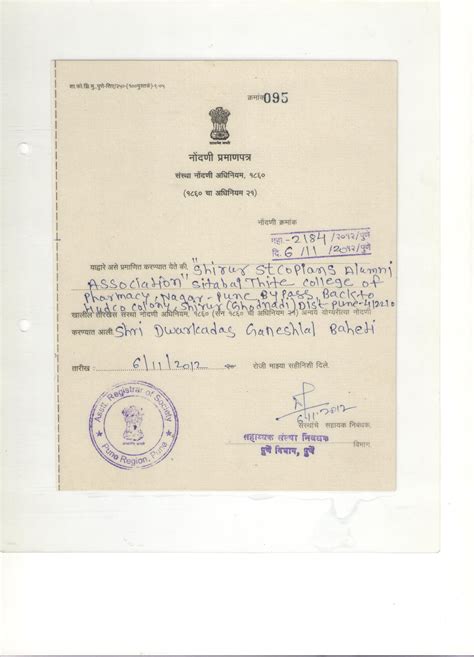 क्रमांक 095
सत्यमेव जयते
नोंदणी प्रमाणपत्र
संस्था नोंदणी अधिनियम, १८६०
(१८६० चा अधिनियम २१)
नोंदणी क्रमांक
महा.- 2184/२०१२/पुणे
दि. 6/11/२०१२/पुणे
याद्वारे असे प्रमाणित करण्यात येते की, "Shirur St copians Alumni
Association" Sitabai Thite college of
Pharmacy, Nagar-Pune Bypass, Back to
Hudco colony, Shirur (Ghodnadi) Dist-Pune-412210
खालील तारखेस संस्था नोंदणी अधिनियम, १८६० (सन १८६० चा अधिनियम २१) अन्वये योग्यरीत्या नोंदणी
करण्यात आली Shri Dwarkadas Ganeshlal Baheti
तारीख : 6/11/2012 रोजी माझ्या सहीनिशी दिले.
6/11/2012
संस्थांचे सहायक निबंधक,
सहाय्यक संस्था निबंधक
पुणे विभाग, पुणे विभाग.
Asstt. Registrar of Society
Pune Region, Pune